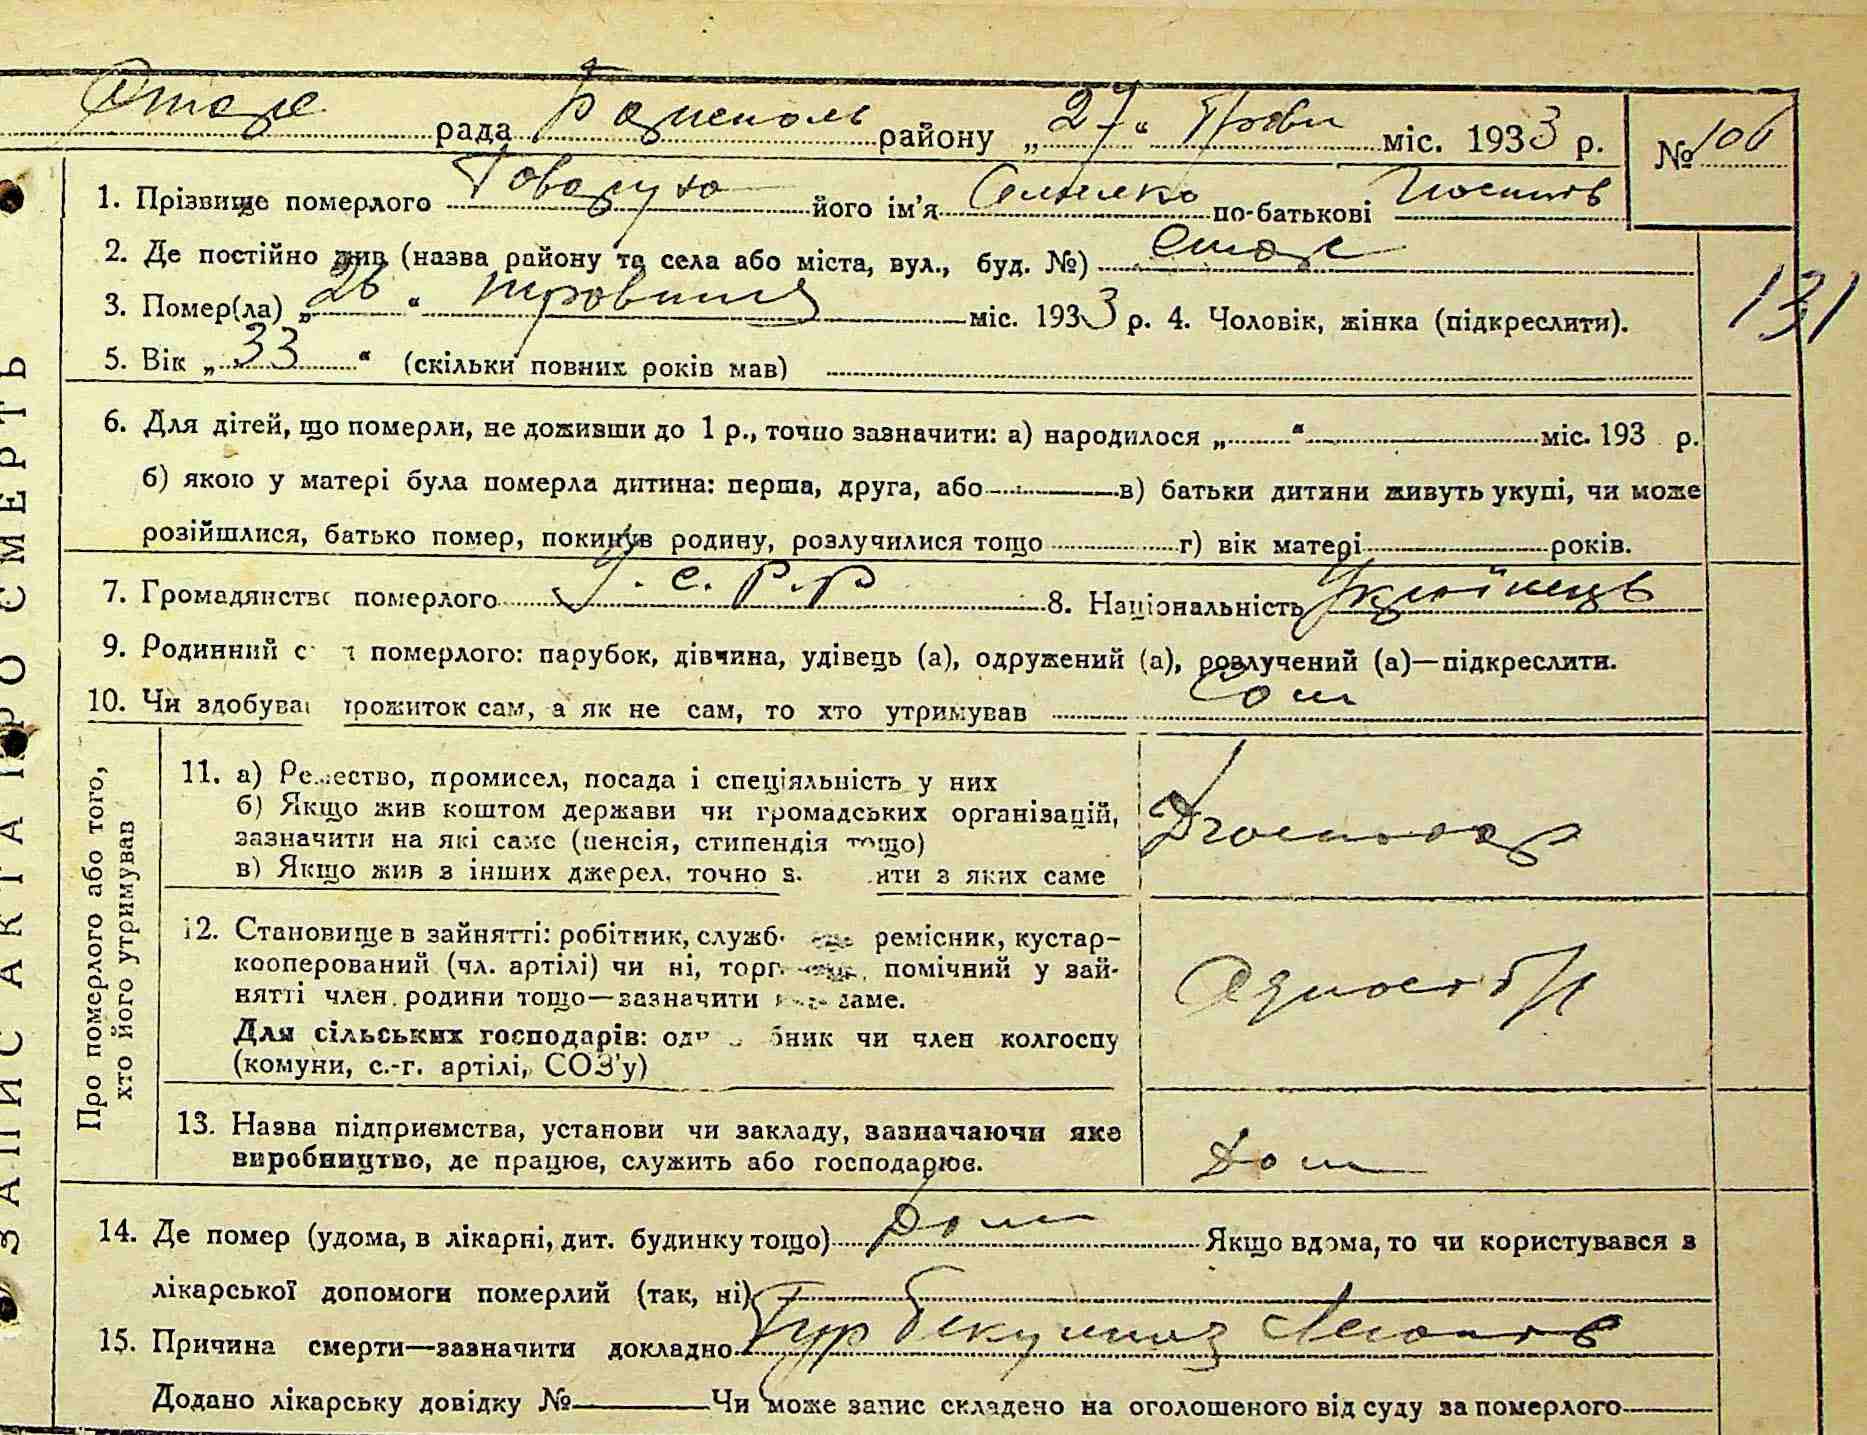 рада район у „27“ Травн міс. 1933 р. № 106
1. Прізвище померлого його ім'я по-батькові
2. Де постійно жив (назва району та села або міста, вул., буд. №)
131
3. Помер(ла) „26“ травния міс. 1933 р. 4. Чоловік, жінка (підкреслити).
5. Вік „33“ (скільки повних років мав)
6. Для дітей, що померли, не доживши до 1 р., точно зазначити: а) народилося „ “ міс. 193 р.
б) якою у матері була померла дитина: перша, друга, або в) батьки дитини живуть укупі, чи може
розійшлися, батько помер, покинув родину, розлучилися тощо г) вік матері років.
7. Громадянство померлого У.С.Р.Р 8. Національність Українець
9. Родинний с померлого: парубок, дівчина, удівець (а), одружений (а), розлучений (а)—підкреслити.
10. Чи здобував прожиток сам, а як не сам, то хто утримував Сам
ЗАПИС АКТА ПРО СМЕРТЬ
Про померлого або того,
хто його утримував
11. а) Ремество, промисел, посада і спеціяльність у них
б) Якщо жив коштом держави чи громадських організацій,
зазначити на які саме (пенсія, стипендія тощо)
в) Якщо жив з інших джерел, точно з ити з яких саме
12. Становище в зайнятті: робітник, служб ремісник, кустар-
кооперований (чл. артілі) чи ні, торг помічний у зай-
нятті член родини тощо—зазначити саме.
Для сільських господарів: од бник чи член колгоспу
(комуни, с.-г. артілі, СОЗ'у)
13. Назва підприємства, установи чи закладу, зазначаючи яке
виробництво, де працює, служить або господарює.
Дом
14. Де помер (удома, в лікарні, дит. будинку тощо) Дом Якщо вдома, то чи користувався з
лікарської допомоги померлий (так, ні)
15. Причина смерти—зазначити докладно Турбекульоз
Додано лікарську довідку № Чи може запис складено на оголошеного від суду за померлого